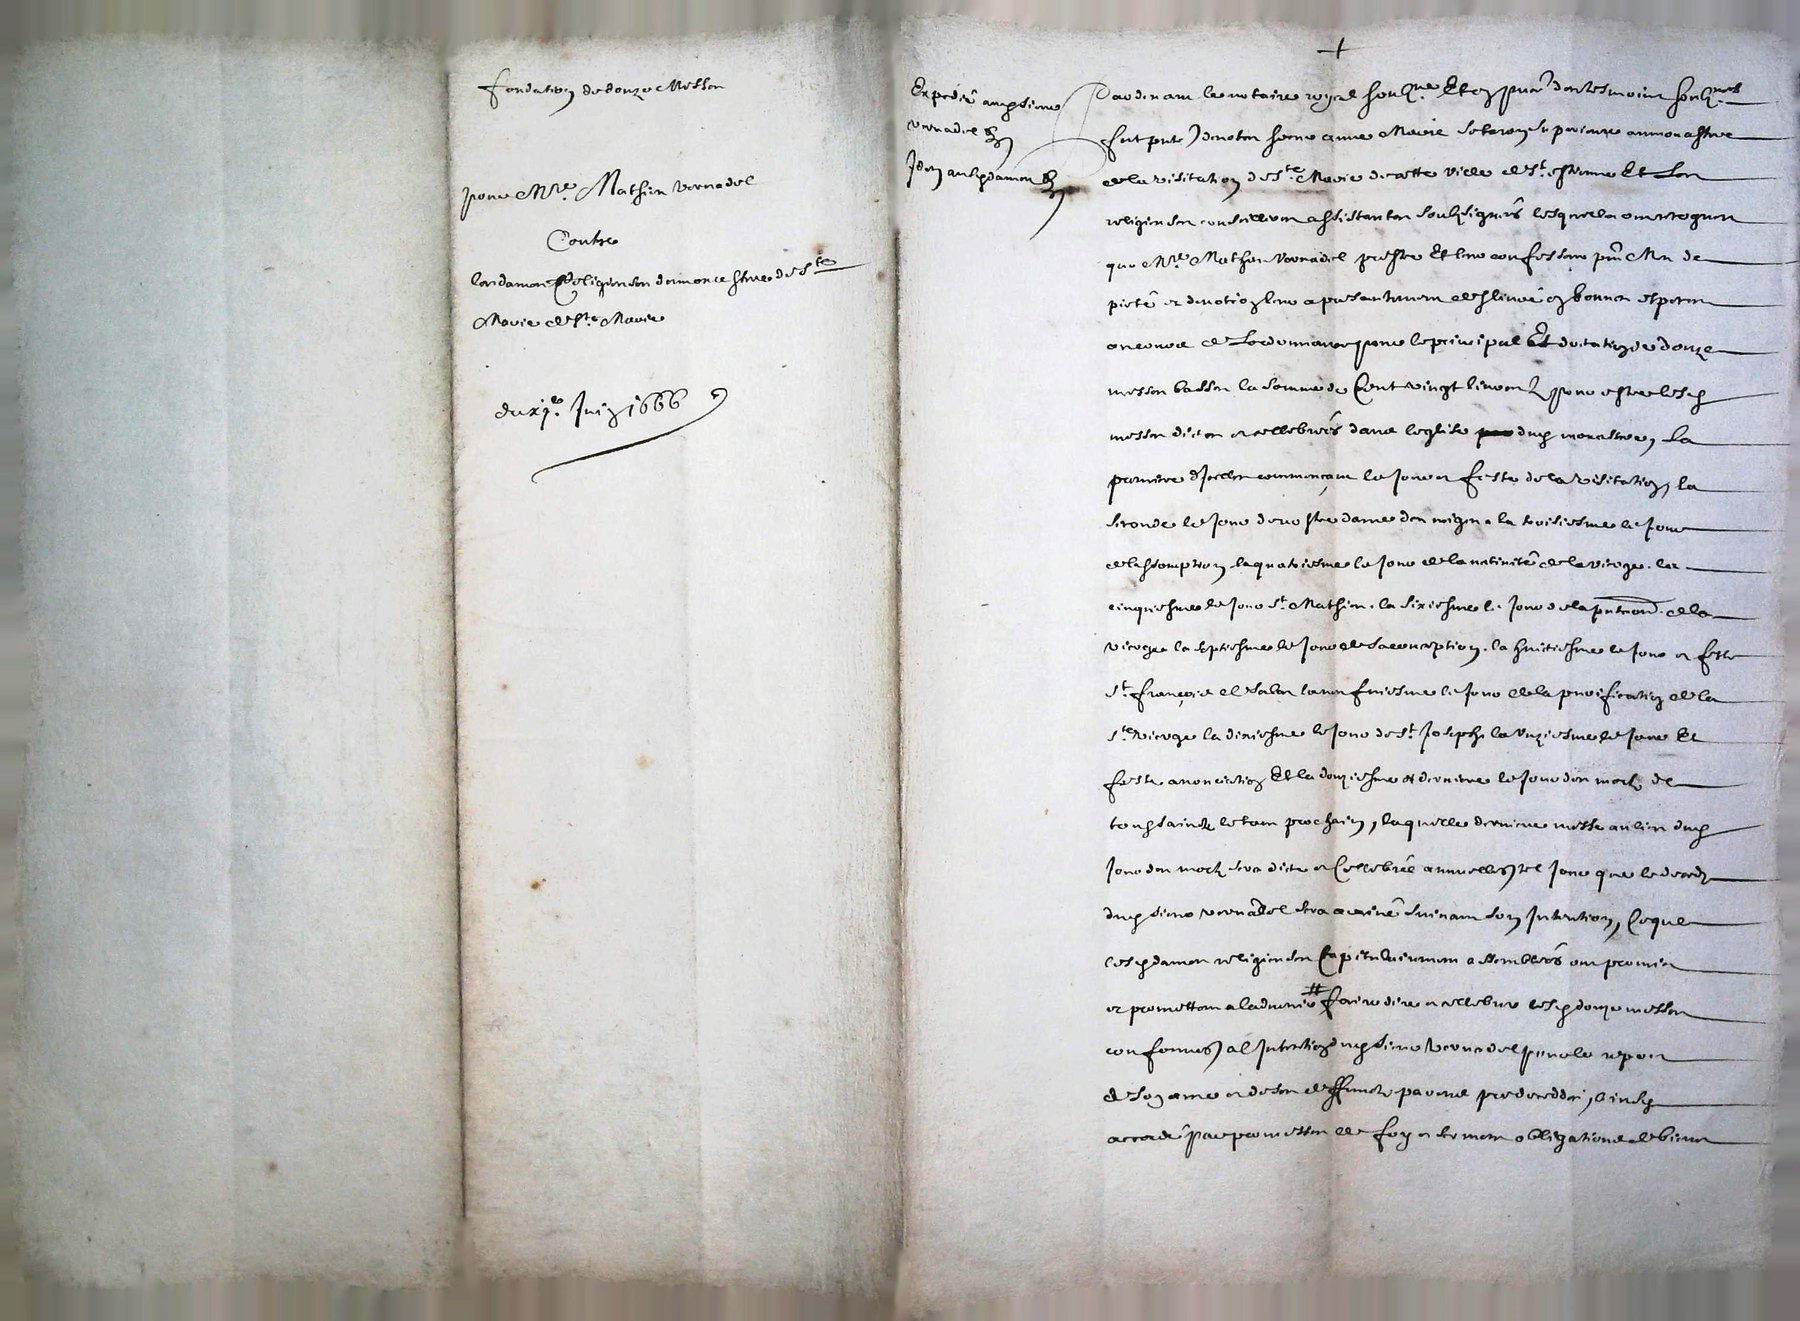 fondation de douze Messes
pour Mre. Mathieu Vernadel
Contre
les dames Religieuses du monestere de Ste
Marie
du xje. Juin 1666
Expedié audsieur
Vernadel
Idem ausd dames
+
Pardevant le notaire royal soubne Et en pnce des tesmoins soubnes
fut pnte devotte seur anne Marie superieure au monastere
de la visitation de Ste. Marie de cette ville de St. estienne Et les
religieuses conseillieres assistantes soubsignées lesquelles ont recogneu
que Mre Mathieu Vernadel prestre Et leur confesseur meu de
pieté et devotion leur a presentement deslivré en bonnes especes
pour le principal Et dotation de douze
messes basses la somme de Cent vingt livres pour estre lesd
messes dictes et cellebrées dans leglise dud monastere, la
premiere dIcelles commencant le Jour et feste de la visitation, la
seconde le Jour de nostre dame des neiges, la troisiesme le Jour
de lassomption, la quatriesme le Jour de la nativité de la vierge, la
cinquiesme le Jour St. Mathieu, la sixiesme le Jour de la pntaon. de la
vierge la septiesme le Jour de sa conception, la huitiesme le Jour et feste
St. françois de Sales la neufviesme le Jour de la purification de la
Ste. vierge la dixiesme le Jour de St. Joseph la unziesme le Jour Et
feste anonciation Et la douziesme et derniere le Jour des mortz de
toussainctz prochain, laquelle derniere messe au lieu dud
Jour des mortz sera dicte et Cellebrée annuellemt tel Jour que le decedz
dud sieur vernadel sera arrivé suivant son Intention, Ce que
lesd dames religieuses Capitulairement assemblées ont promis
et promettent a ladvenir # faire dire et cellebrer lesd douze messes
conformemt a lIntention dud sieur Vernadel pour le repos
de son ame et de ses deffunctz parens predeceddés, ainsy
accordé par promesses de foy et serment obligations de biens